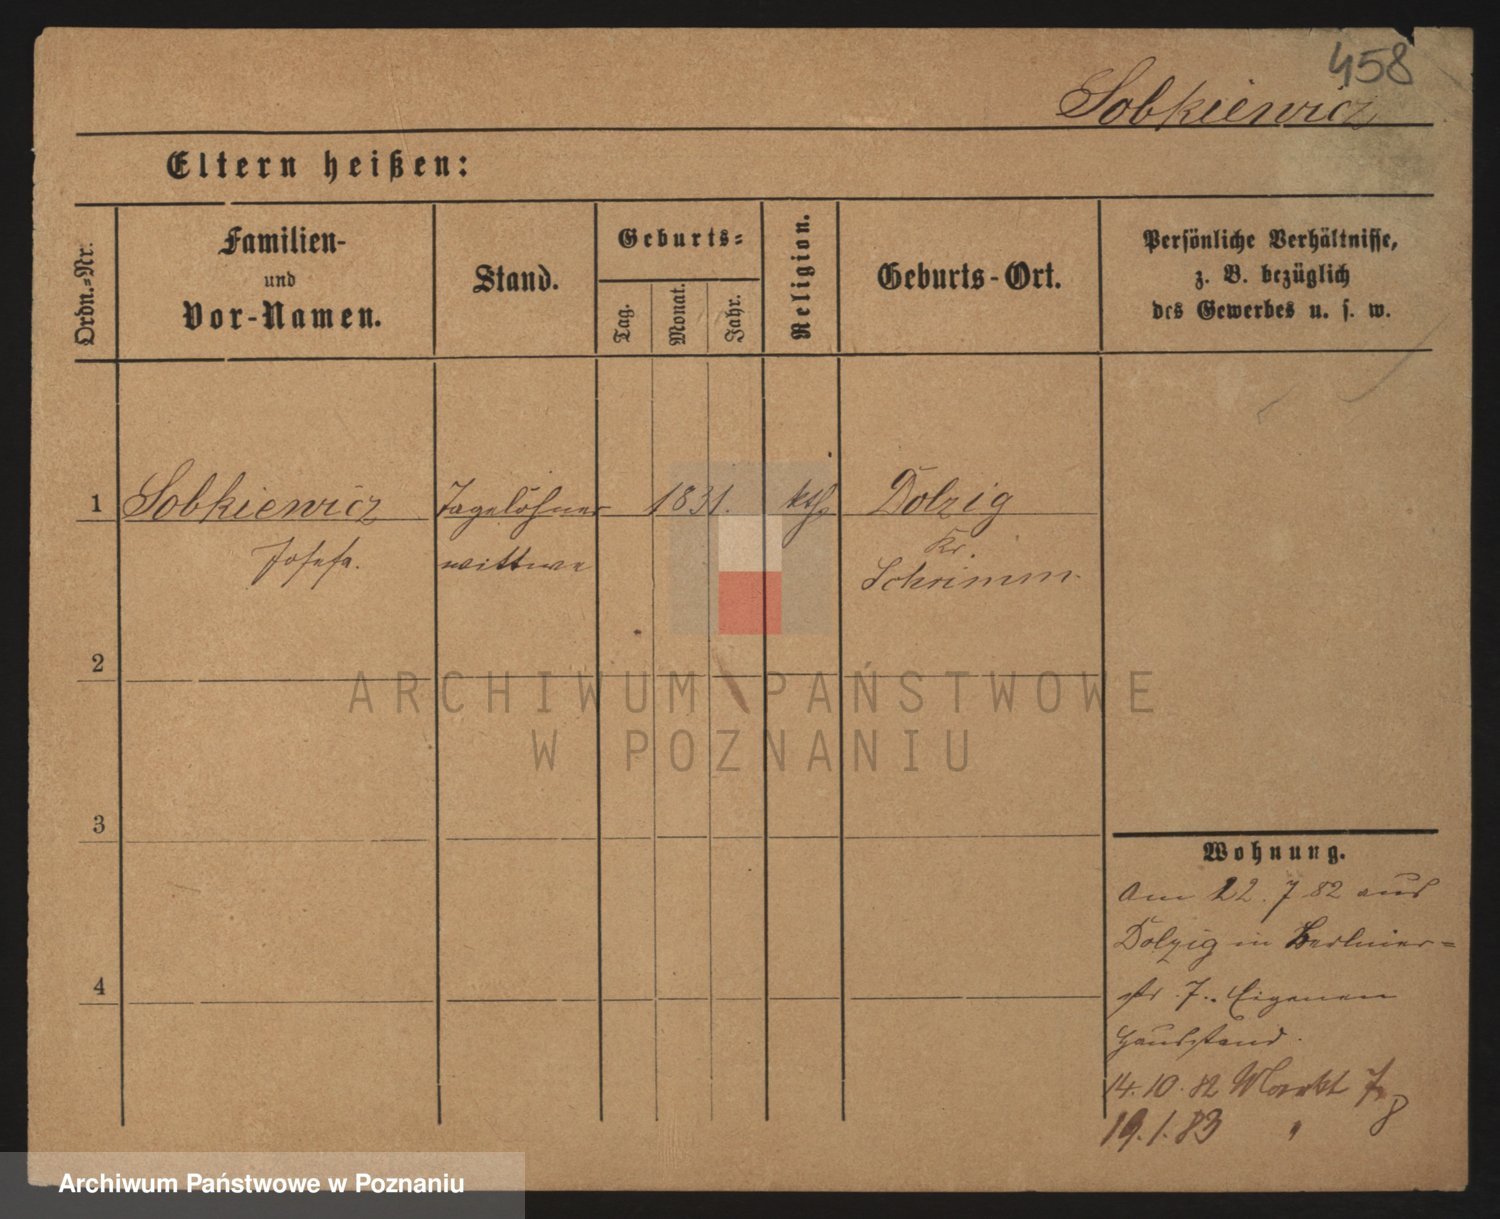 458
Sobkiewicz
Eltern heißen:
Ordn.-Nr.
Familien-
und
Vor-Namen.
Stand.
Geburts-
Tag.
Monat.
Jahr.
Religion.
Geburts-Ort.
Persönliche Verhältnisse,
z. B. bezüglich
des Gewerbes u. s. w.
1 Sobkiewicz Tagelöhner 1831. kth. Dolzig
Josefa. wittwe Kr.
Schrimm.
2
3
4
Wohnung.
Am 22. 7 82 aus
Dolzig in Berliner-
str. 7. Eigenen
Hausstand.
14. 10. 82 Markt 7
19. 1. 83 " 8
ARCHIWUM PAŃSTWOWE
W POZNANIU
Archiwum Państwowe w Poznaniu